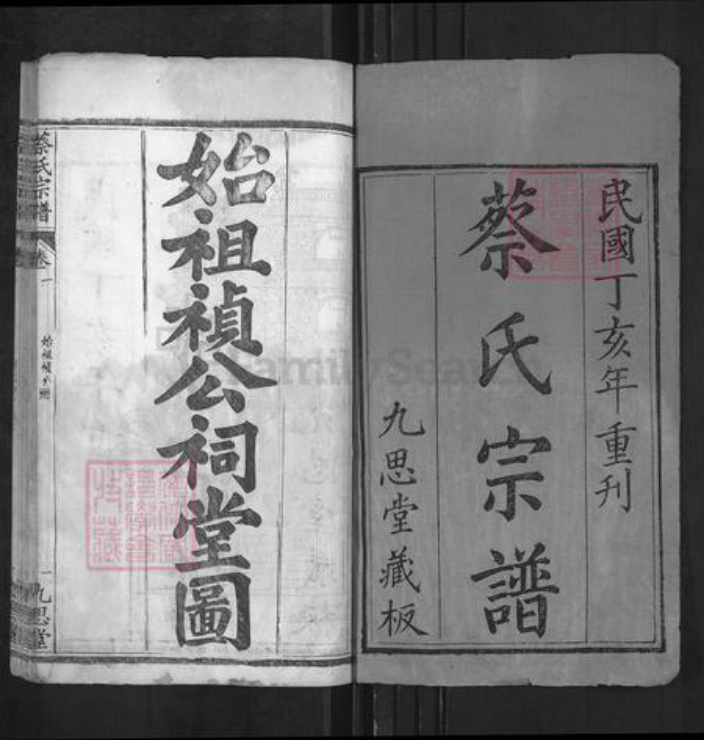 民國丁亥年重刊
蔡氏宗譜
九思堂藏板
始祖禎公祠堂圖
蔡氏宗譜
卷一
一
九思堂
FamilySearch